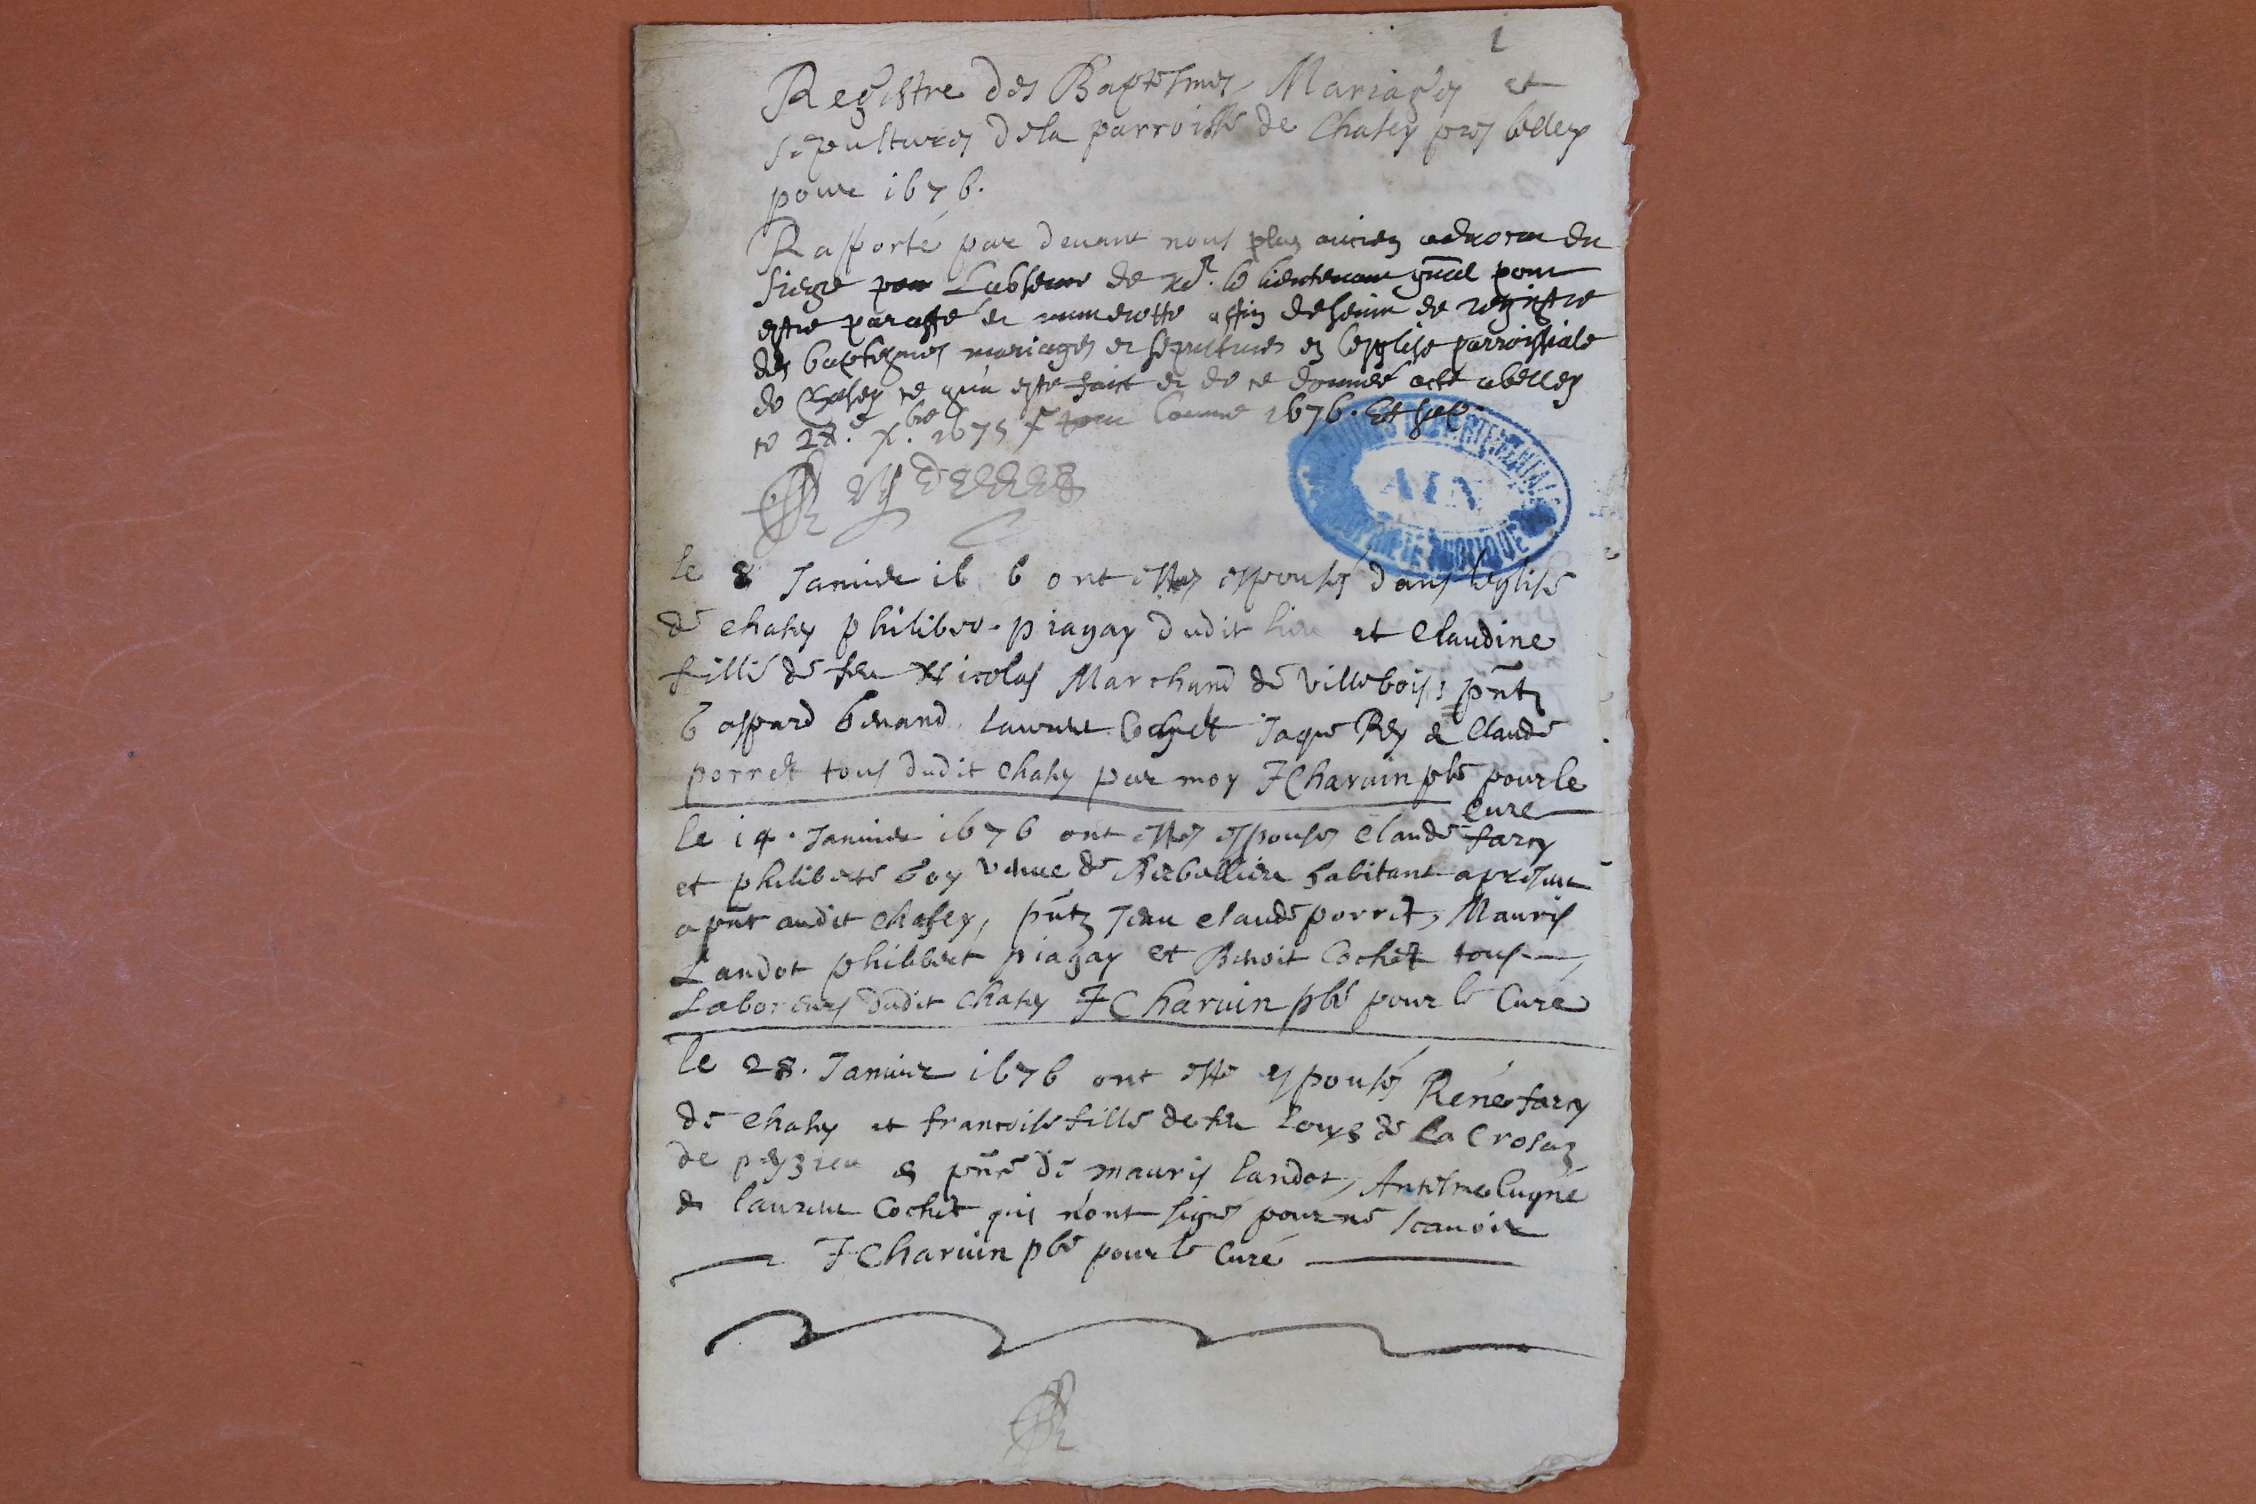 1
Registre des Baptesmes, Mariages et
sepultures dela parroisse de Chasey pres belley
pour 1676.
Rapporté par devant nous plus ancien advocat du
siege pour Labsence de Mr. le lieutenant gnal pour
estre paraffé et numerotté affin deservir de registre
des baptesmes mariages et sepultures en leglise parroissiale
de Chasey ce qua esté faict et de ce donner acte a belley
ce 28.e x.bre 1675 pour Lannee 1676.
ARCHIVES DEPARTEMENTALES
AIN
PROPRIETE PUBLIQUE
le 8 Janvier 16 6 ont estes espousés dans leglise
de chasey philiber piagay dudit lieu et Claudine
fille de feu Nicolas Marchand de villebois; pñtz
Gaspard benand laurent Cochet Jaque Rey et Claude
porret tous dudit chasey par moy F Charvin pbre pour le
Curé
le 14. Janvier 1676 ont estes espousés claude farcy
et philiberte Goy vefve de habitant apresent
a pñt audit chasey, pñtz Jean claude porret, Mauris
Landot philibert piagay et Benoit Cochet tous
Laboreurs dudit chasey F Charvin pbre pour le Curé
le 28. Janvier 1676 ont esté espousés René farcy
de chasey et francoise fille de feu Louys de La Crosaz
de peyzieu en pñce de mauris landot, Antelme Cugne
et laurent Cochet qui nont signé pour ne scavoir
F Charvin pbre pour le Curé